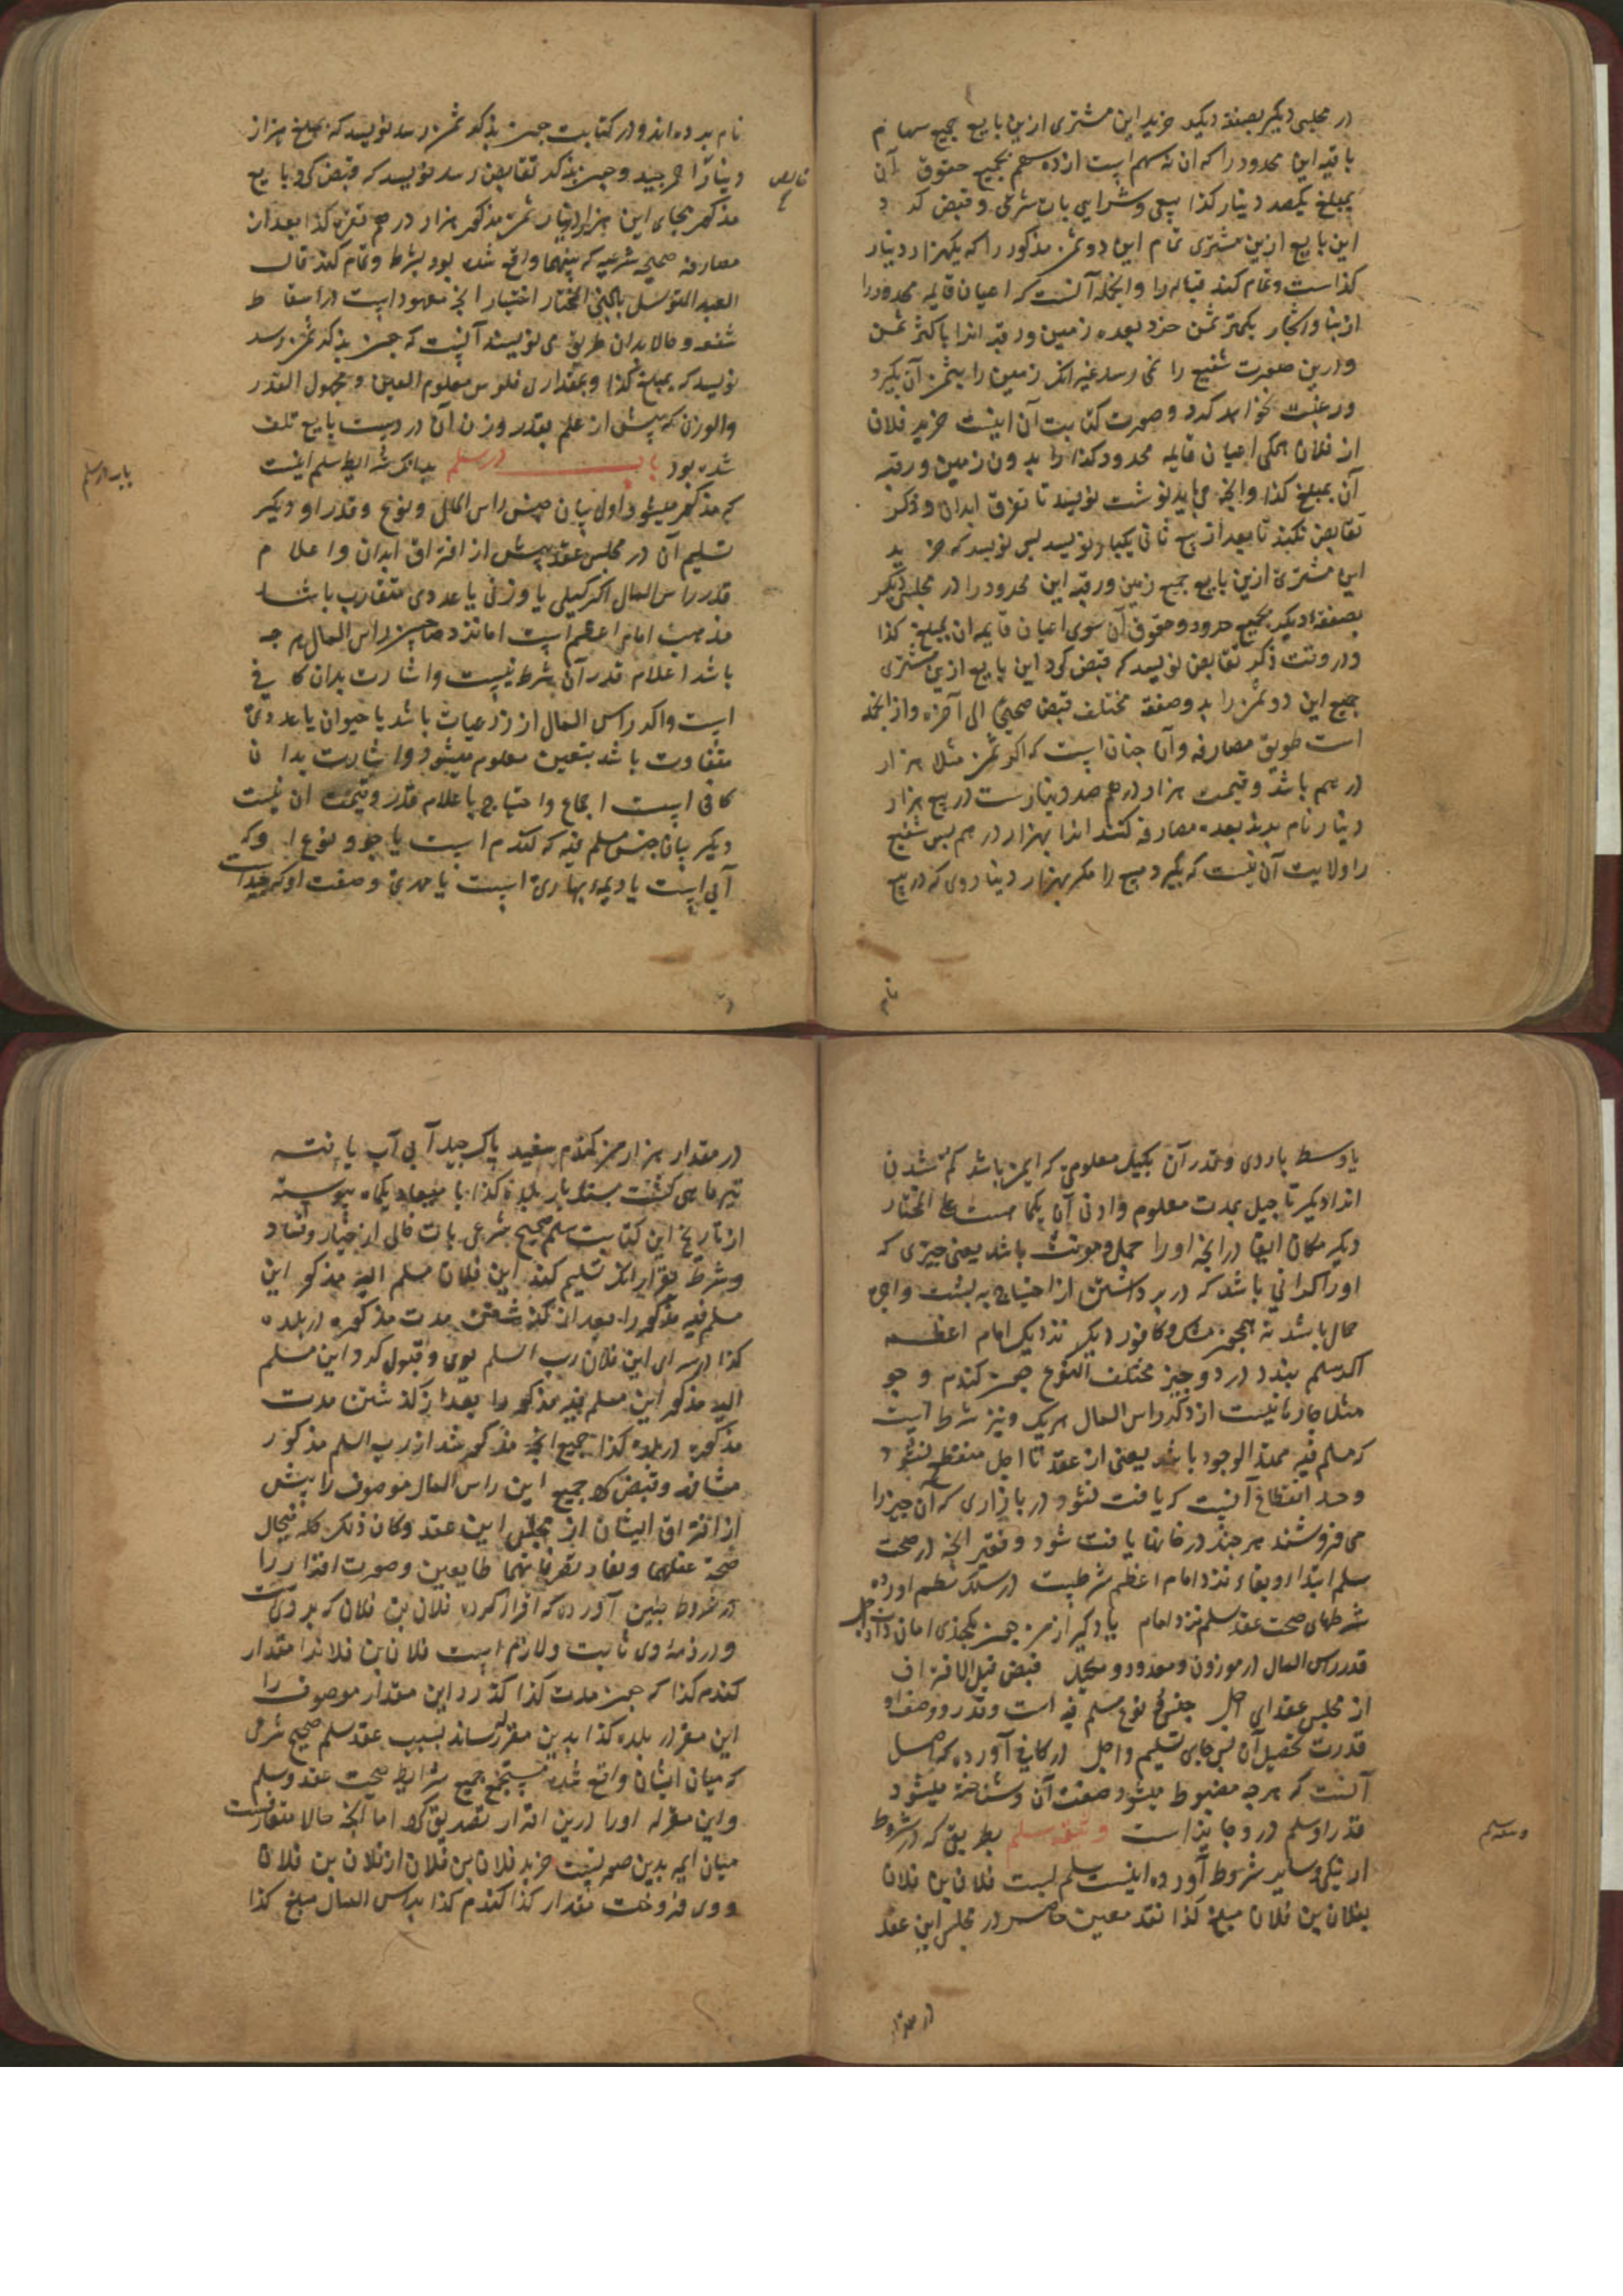 در مجلس دیگر بصفقه دیگر خرید این مشتری ازین بایع جمیع سهام
باقیه این محدود را که آن نه سهم است از ده سهم بجمیع حقوق آن
بمبلغ یکصد دینار کذا بیعی و شرایی بات شرعی و قبض کرد
این بایع ازین مشتری تمام این دو ثمن مذکور را که یکهزار دینار
کذاست و تمام کند قباله را و از انجمله آنست که اعیان قایمه محدود را
از بنا و اشجار بکمتر ثمن خرد بعده زمین و رقبه انرا باکثر ثمن
ودرین صورت شفیع را نمی رسد غیر انکه زمین را بثمن آن بگیرد
و رغبت نخواهد کرد و صورت کتابت آن اینست خرید فلان
از فلان همگی اعیان قایمه محدود کذا را بدون زمین و رقبه
آن بمبلغ کذا و انچه می باید نوشت نویسد تا تفرق ابدان و ذکر
تقابض نکند تا بعد از بیع ثانی یکبار نویسد پس نویسد که خرید
این مشتری ازین بایع جمیع زمین و رقبه این محدود را در مجلس دیگر
بصفقه دیگر بجمیع حدود و حقوق آن سوی اعیان قایمه آن بمبلغ کذا
و در وقت ذکر تقابض نویسد که قبض کرد این بایع ازین مشتری
جمیع این دو ثمن را بدو صفقه مختلف قبض صحیح الی آخره و از انجمله
است طریق مصارفه و آن چنان است که اگر ثمن مثلا هزار
درهم باشد و قیمت هزار درهم صد دینارست در بیع هزار
دینار نام برند بعده مصارفه کنند انرا بهزار درهم پس شفیع
را ولایت آن نیست که بگیرد مبیع را مگر بهزار دینار وی که در بیع
نام
نام برده اند و در کتابت چون بذکر ثمن رسد نویسد که بمبلغ هزار
دینار احمر جید و چون بذکر تقابض رسد نویسد که قبض کرد بایع
مذکور بجای این هزار دینار ثمن مذکور هزار درهم نقره کذا بعد از
مصارفه صحیحه شرعیه که بینهما واقع شده بود بشرط و تمام کند قال
العبد المتوسل بالنبی المختار اختیار انچه معهود است در اسقاط
شفعه و حالا بدان طریق می نویسند آنست که چون بذکر ثمن رسد
نویسد که بمبلغ کذا و بمقداری فلوس معلوم العین و مجهول القدر
والوزن که پیش از علم بقدر وزن آن در دست بایع تلف
شده بود باب در سلم بدانکه شرایط سلم اینست
باب در سلم
که مذکور میشود اول بیان جنس راس المال و نوع و قدر او و دیگر
تسلیم آن در مجلس عقد پیش از افتراق ابدان و اعلام
قدر راس المال اگر کیلی یا وزنی یا عددی متقارب باشد
مذهب امام اعظم است اما نزد صاحبین راس المال هرچه
باشد اعلام قدر آن شرط نیست و اشارت بدان کافی
است و اگر راس المال از زرعیات باشد یا حیوان یا عددی
متفاوت باشد بتعیین معلوم میشود و اشارت بدان
کافی است اجماع و احتیاج باعلام قدر و قیمت آن نیست
دیگر بیان جنس مسلم فیه که گندم است یا جو و نوع او که
آبی است یا دیمه بهاری است یا و صفت او که جید است
یا وسط یا ردی و قدر آن بکیل معلومی که ایمن باشد گم شدن
انرا دیگر تاجیل بمدت معلوم و ادنی آن یکماهست علی المختار
دیگر مکان ایفا در انچه او را حمل و مونت باشد یعنی چیزی که
او را گرانی باشد که در برداشتن از احتیاج به پشت و اجرت
حمال باشد نه همچون مشک و کافور دیگر نزدیک امام اعظم
اگر سلم بندد در دو چیز مختلف النوع چون گندم و جو
مثلا چاره نیست از ذکر راس المال هریک و نیز شرط است
که مسلم فیه ممتد الوجود باشد یعنی از عقد تا اجل منقطع نشود
و حد انقطاع آنست که یافت نشود در بازاری که آن چیز را
می فروشند هرچند در خانها یافت شود و فقیر انچه در صحت
سلم ابتداء و بقاء نزد امام اعظم شرطست در سلک نظم آورده
شرطهای صحت عقد سلم نزد امام یاد گیر از من چون بگذری
قدر راس المال در موزون و معدود و مکیل قبض قبل الافتراق
از مجلس عقد ای اجل جنس نوع مسلم فیه است و قدر و وصف او
قدرت تحصیل آن پس جای تسلیم و اجل در کافی آورده که اصل
آنست که هرچه مضبوط میشود صفت آن و شناخته میشود
قدر او سلم در و جایز است وثیقه سلم بطریق که در شروط
وثیقه سلم
اوزنیکی و سایر شروط آورده اینست سلم بست فلان بن فلان
بفلان بن فلان مبلغ کذا نقد معین حاضر در مجلس این عقد
در مقدار
در مقدار هزار من گندم سفید پاک جید آبی آب یافته
تیرماهی کشت بسنگ بلده کذا با میعاد یکماه پیوسته
از تاریخ این کتابت سلم صحیح شرعی بات خالی از خیار و فساد
و شرط بقرار انکه تسلیم کند این فلان مسلم الیه مذکور این
مسلم فیه مذکور را بعد از گذشتن مدت مذکوره در بلده
کذا در سرای این فلان رب السلم بوی و قبول کرد این مسلم
الیه مذکور این مسلم فیه مذکور را بعد از گذشتن مدت
مذکوره در بلده کذا جمیع انچه مذکور شد از رب السلم مذکور
مشافهه و قبض کرد جمیع این راس المال موصوف را پیش
از افتراق ایشان از مجلس این عقد و کان ذلک کله فی حال
صحة عقلهما و نفاذ تصرفاتهما طایعین و صورت اقرار را
در شروط چنین آورده که اقرار کرد فلان بن فلان که بر ویست
و در ذمه وی ثابت و لازم است فلان بن فلان را مقدار
گندم کذا که چون مدت کذا گذرد این مقدار موصوف را
این مقر در بلده کذا بدین مقرله رساند بسبب عقد سلم صحیح شرعی
که میان ایشان واقع شده مستجمع جمیع شرایط صحت عقد سلم
و این مقرله او را درین اقرار تصدیق کرد اما انچه حالا متعارفست
میان ایمه بدین صورتست خرید فلان بن فلان از فلان بن فلان
و وی فروخت مقدار کذا گندم کذا براس المال مبلغ کذا